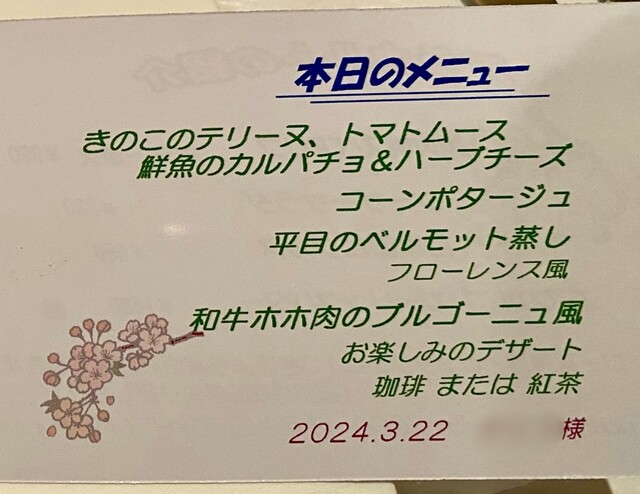 本日のメニュー
きのこのテリーヌ、トマトムース
鮮魚のカルパチョ&ハーブチーズ
コーンポタージュ
平目のベルモット蒸し
フローレンス風
和牛ホホ肉のブルゴーニュ風
お楽しみのデザート
珈琲 または 紅茶
2024.3.22 様